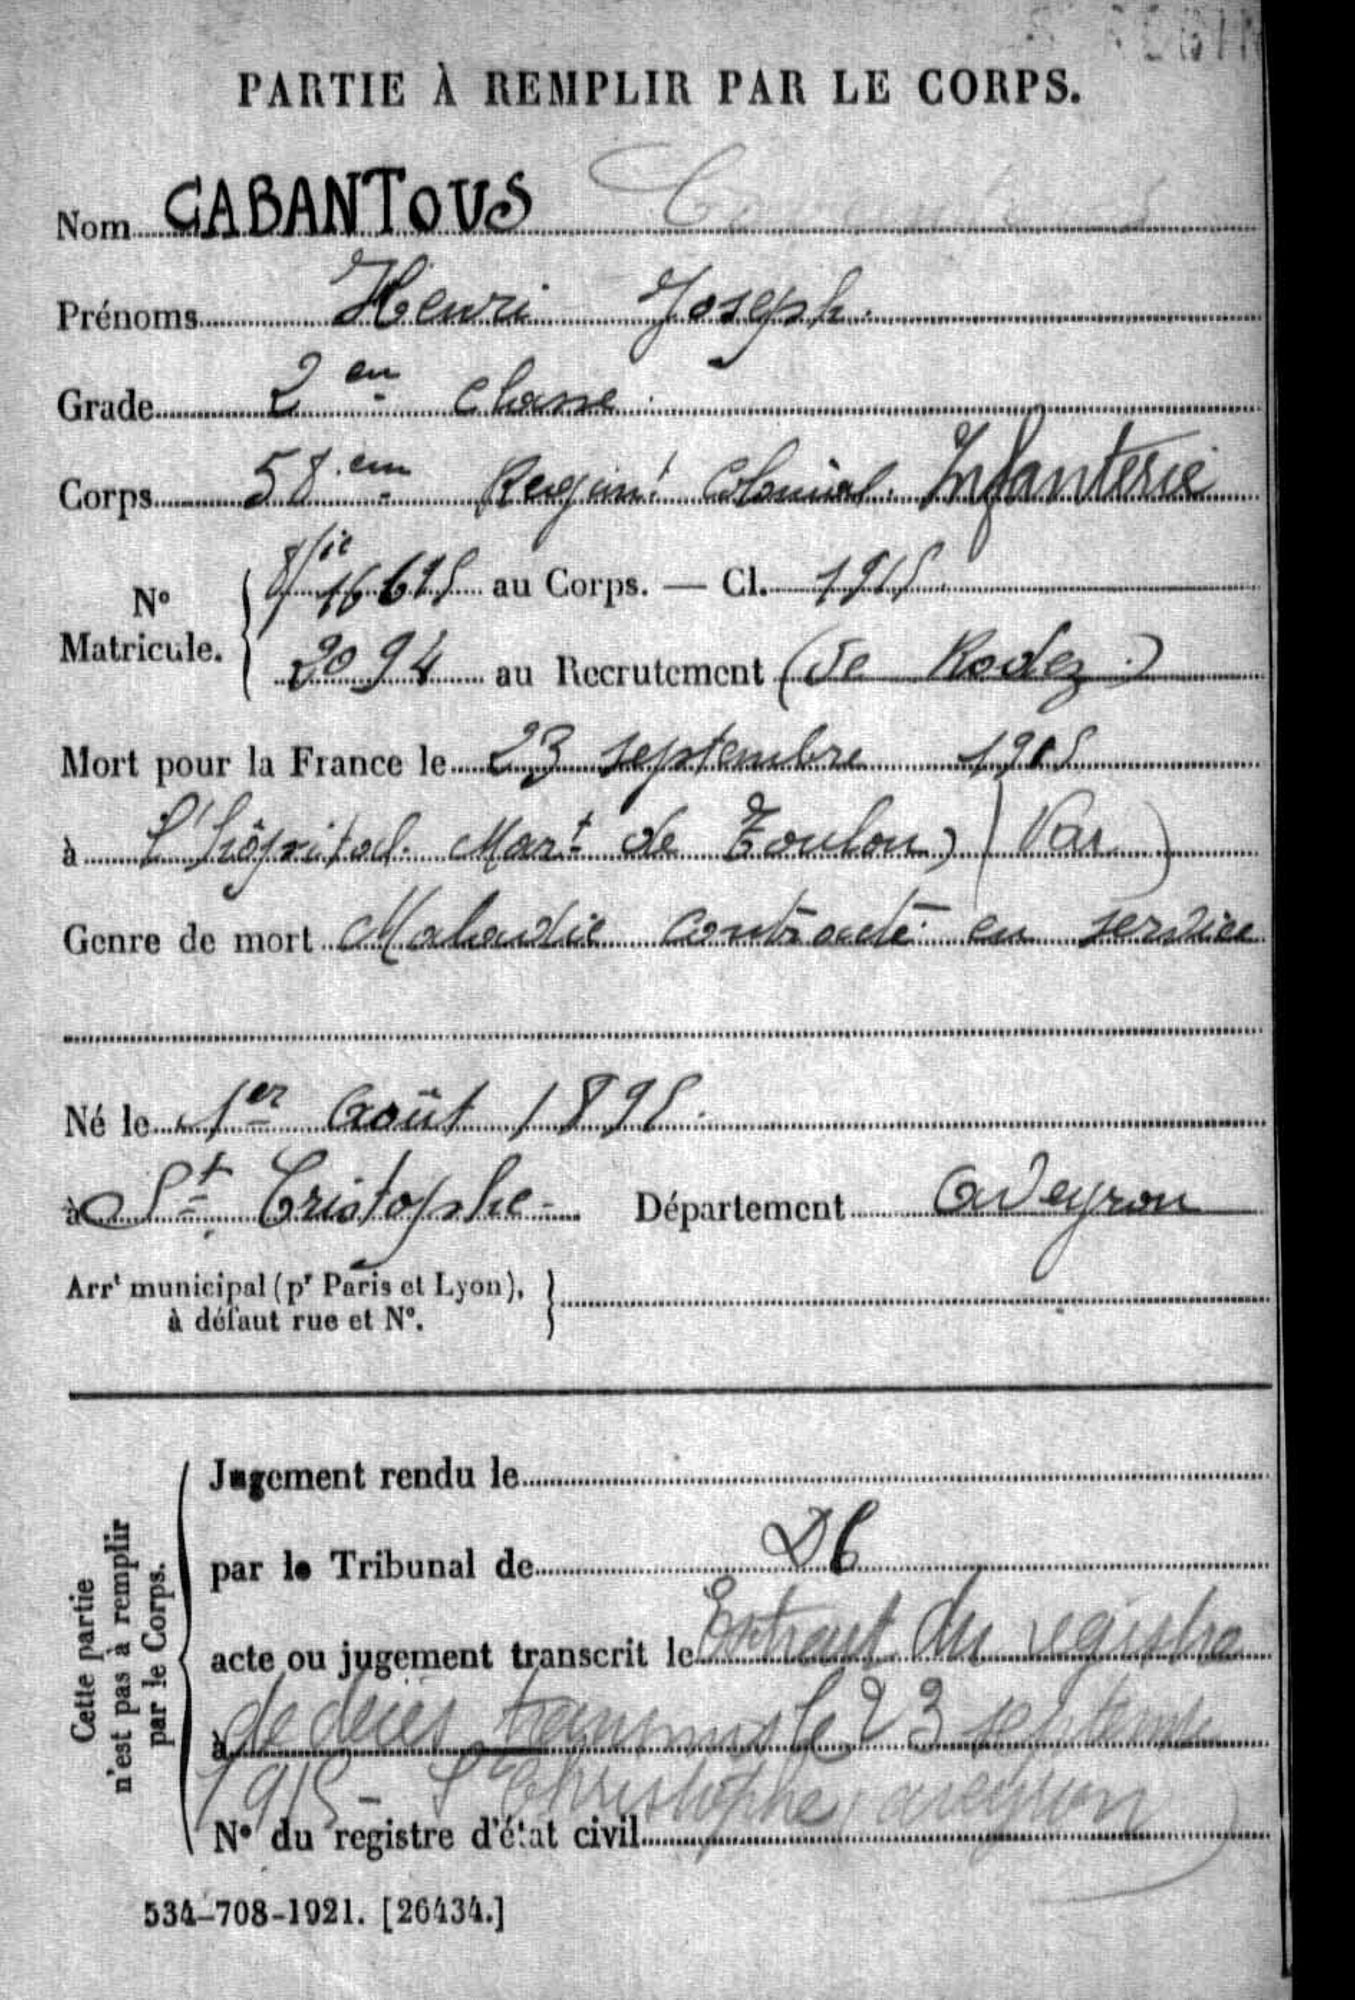 PARTIE À REMPLIR PAR LE CORPS.
Nom CABANTOUS
Prénoms Henri Joseph.
Grade 2em Classe
Corps 58.em Regimt Colonial. Infanterie
No Matricule. 16695 au Corps. — Cl. 1915
2094 au Recrutement (de Rodez.)
Mort pour la France le 23 septembre 1915
à L'hôpital. Mart de Toulon, (Var)
Genre de mort Maladie contracté en service
Né le 1er Août 1895.
à St Cristophe - Département Aveyron
Arrt municipal (pr Paris et Lyon),
à défaut rue et No.
Cette partie
n'est pas à remplir
par le Corps.
Jugement rendu le
par le Tribunal de DC
acte ou jugement transcrit le Extrait du registre
à de décès transmis le 23 septembre
1915 - St Christophe, aveyron
No du registre d'état civil
534-708-1921. [26434.]